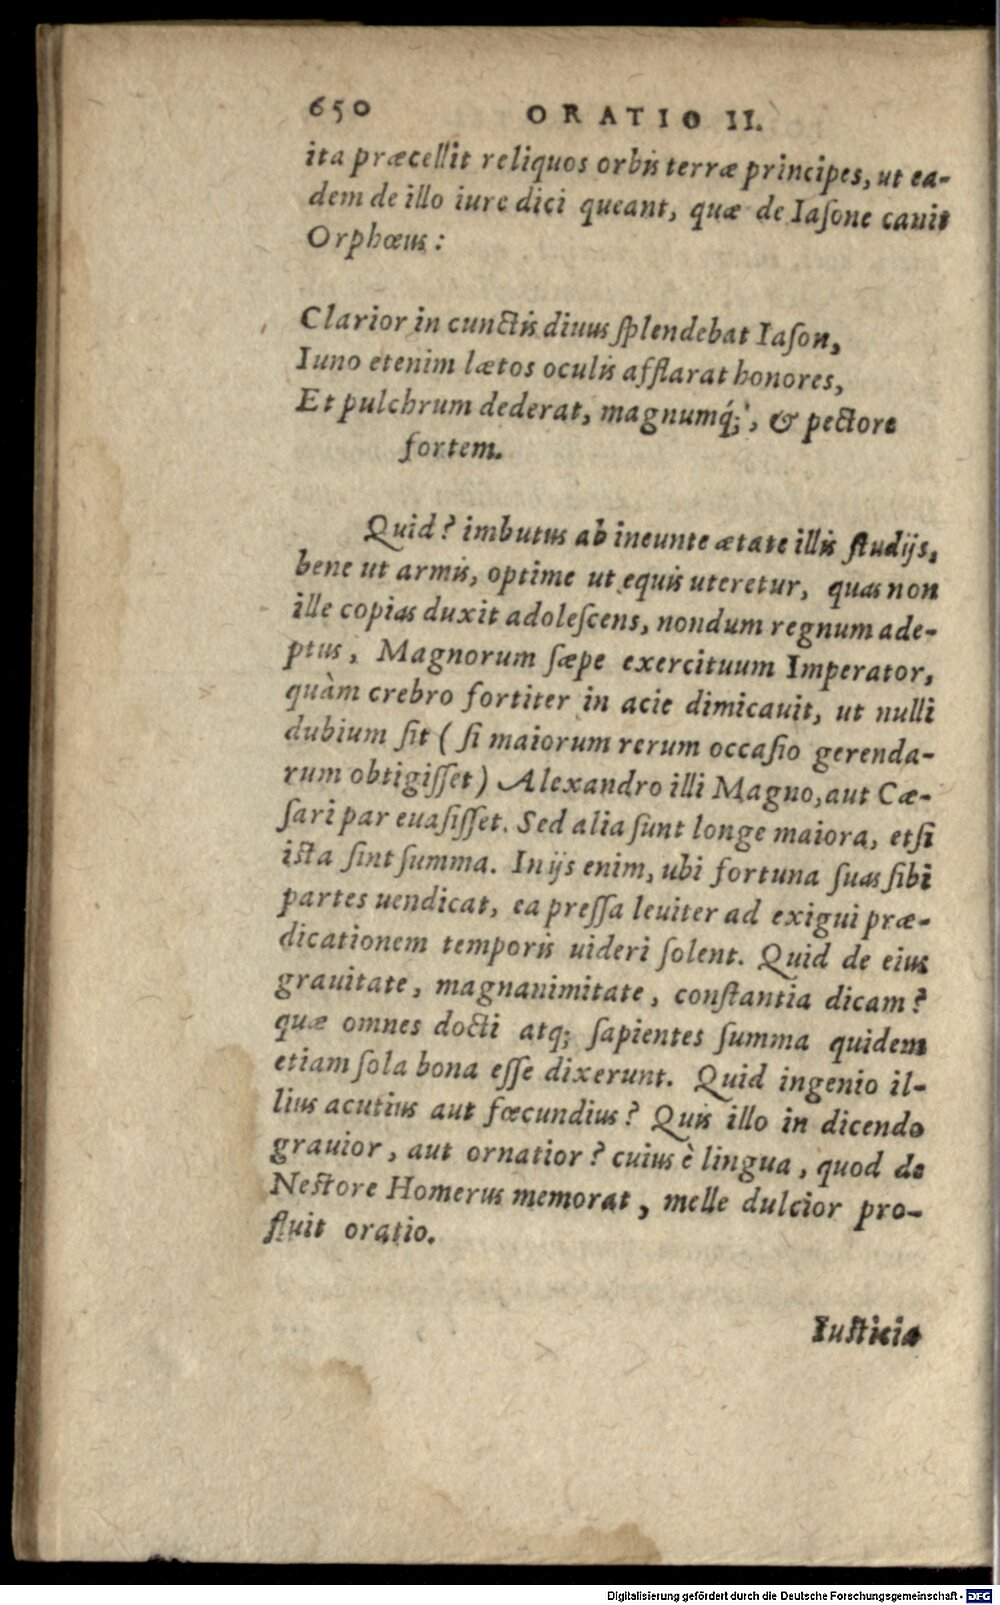 650 ORATIO II.
ita præcellit reliquos orbis terræ principes, ut ea-
dem de illo iure dici queant, quæ de Iaſone cauit
Orphœus:
Clarior in cunctis diuus ſplendebat Iaſon,
Iuno etenim lætos oculis afflarat honores,
Et pulchrum dederat, magnumq́;, & pectore
fortem.
Quid? imbutus ab ineunte ætate illis ſtudijs,
bene ut armis, optime ut equis uteretur, quas non
ille copias duxit adoleſcens, nondum regnum ade-
ptus, Magnorum ſæpe exercituum Imperator,
quàm crebro fortiter in acie dimicauit, ut nulli
dubium ſit (ſi maiorum rerum occaſio gerenda-
rum obtigiſſet) Alexandro illi Magno, aut Cæ-
ſari par euaſiſſet. Sed alia ſunt longe maiora, etſi
iſta ſint ſumma. In ijs enim, ubi fortuna ſuas ſibi
partes uendicat, ea preſſa leuiter ad exigui præ-
dicationem temporis uideri ſolent. Quid de eius
grauitate, magnanimitate, conſtantia dicam?
quæ omnes docti atq; ſapientes ſumma quidem
etiam ſola bona eſſe dixerunt. Quid ingenio il-
lius acutius aut fœcundius? Quis illo in dicendo
grauior, aut ornatior? cuius è lingua, quod de
Neſtore Homerus memorat, melle dulcior pro-
fluit oratio.
Iuſticia
Digitalisierung gefördert durch die Deutsche Forschungsgemeinschaft - DFG